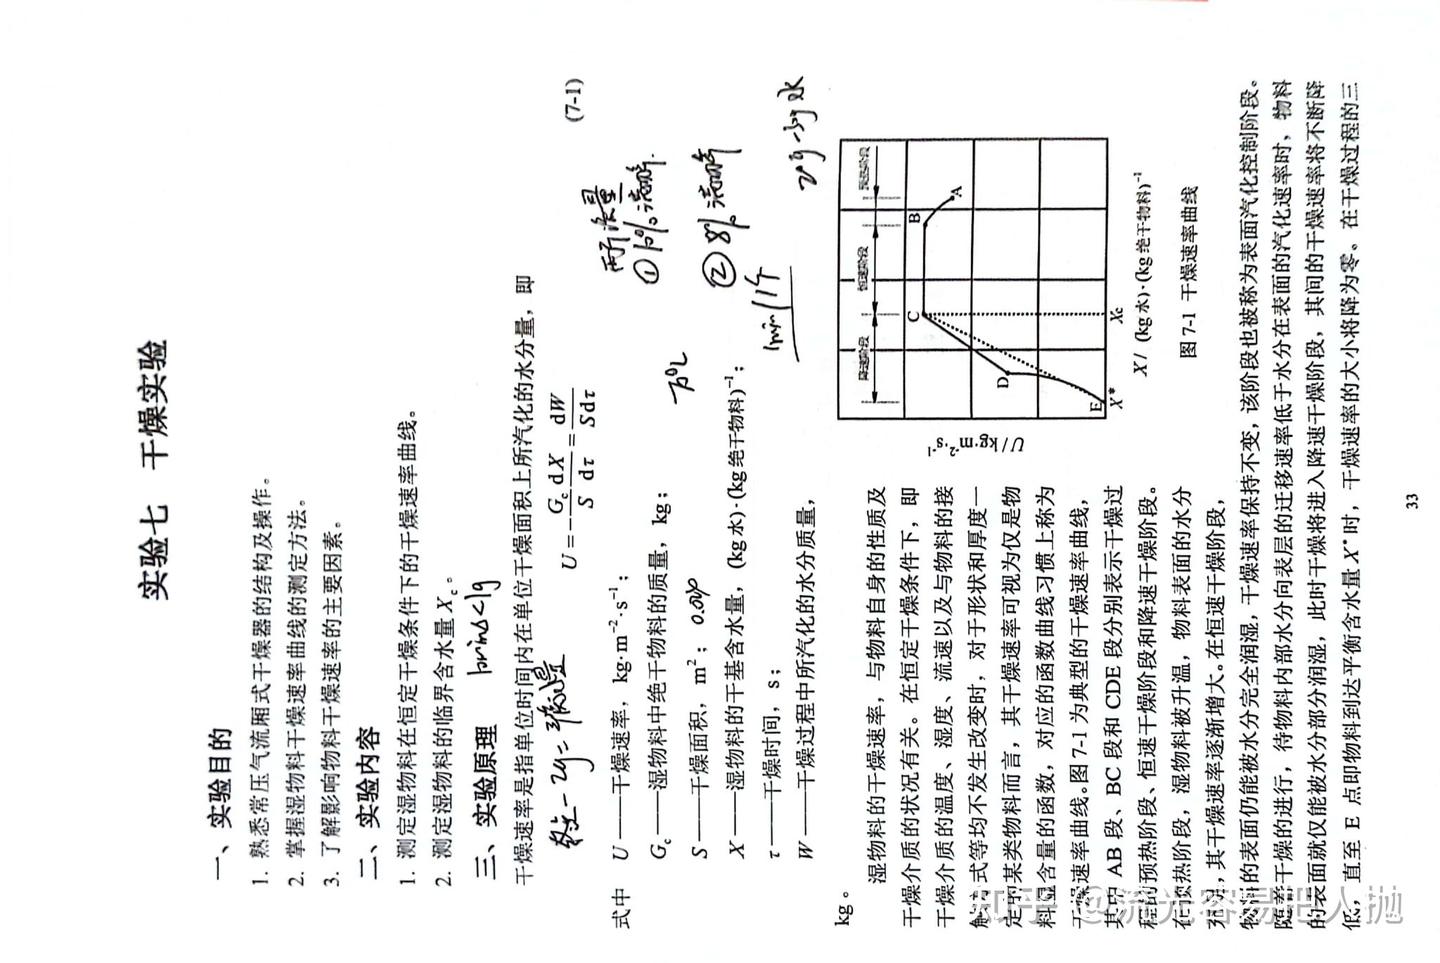 实验七 干燥实验
一、实验目的
1. 熟悉常压气流厢式干燥器的结构及操作。
2. 掌握湿物料干燥速率曲线的测定方法。
3. 了解影响物料干燥速率的主要因素。
二、实验内容
1. 测定湿物料在恒定干燥条件下的干燥速率曲线。
2. 测定湿物料的临界含水量 Xc。
三、实验原理 1min<1g
干燥速率是指单位时间内在单位干燥面积上所汽化的水分量，即
U = −(Gc/S)(dX/dτ) = dW/(Sdτ) (7-1)
两个流量
① 10%
② 8%
1min 11个
70℃
式中 U——干燥速率，kg·m⁻²·s⁻¹；
Gc——湿物料中绝干物料的质量，kg；
S——干燥面积，m²；
X——湿物料的干基含水量，(kg 水)·(kg 绝干物料)⁻¹；
τ——干燥时间，s；
W——干燥过程中所汽化的水分质量，
kg。
湿物料的干燥速率，与物料自身的性质及
干燥介质的状况有关。在恒定干燥条件下，即
干燥介质的温度、湿度、流速以及与物料的接
触方式等均不发生改变时，对于形状和厚度一
定的某类物料而言，其干燥速率可视为仅是物
料湿含量的函数，对应的函数曲线习惯上称为
干燥速率曲线。图 7-1 为典型的干燥速率曲线，
其中 AB 段、BC 段和 CDE 段分别表示干燥过
程的预热阶段、恒速干燥阶段和降速干燥阶段。
在预热阶段，湿物料被升温，物料表面的水分
汽化，其干燥速率逐渐增大。在恒速干燥阶段，
U / kg·m⁻²·s⁻¹
降速阶段 恒速阶段 预热阶段
A
B
C
D
E
X* Xc
X / (kg 水)·(kg 绝干物料)⁻¹
图 7-1 干燥速率曲线
物料的表面仍能被水分完全润湿，干燥速率保持不变，该阶段也被称为表面汽化控制阶段。
随着干燥的进行，待物料内部水分向表层的迁移速率低于水分在表面的汽化速率时，物料
的表面就仅能被水分部分润湿，此时干燥将进入降速干燥阶段，其间的干燥速率将不断降
低，直至 E 点即物料到达平衡含水量 X* 时，干燥速率的大小将降为零。在干燥过程的三
33
知乎 @流光容易把人抛